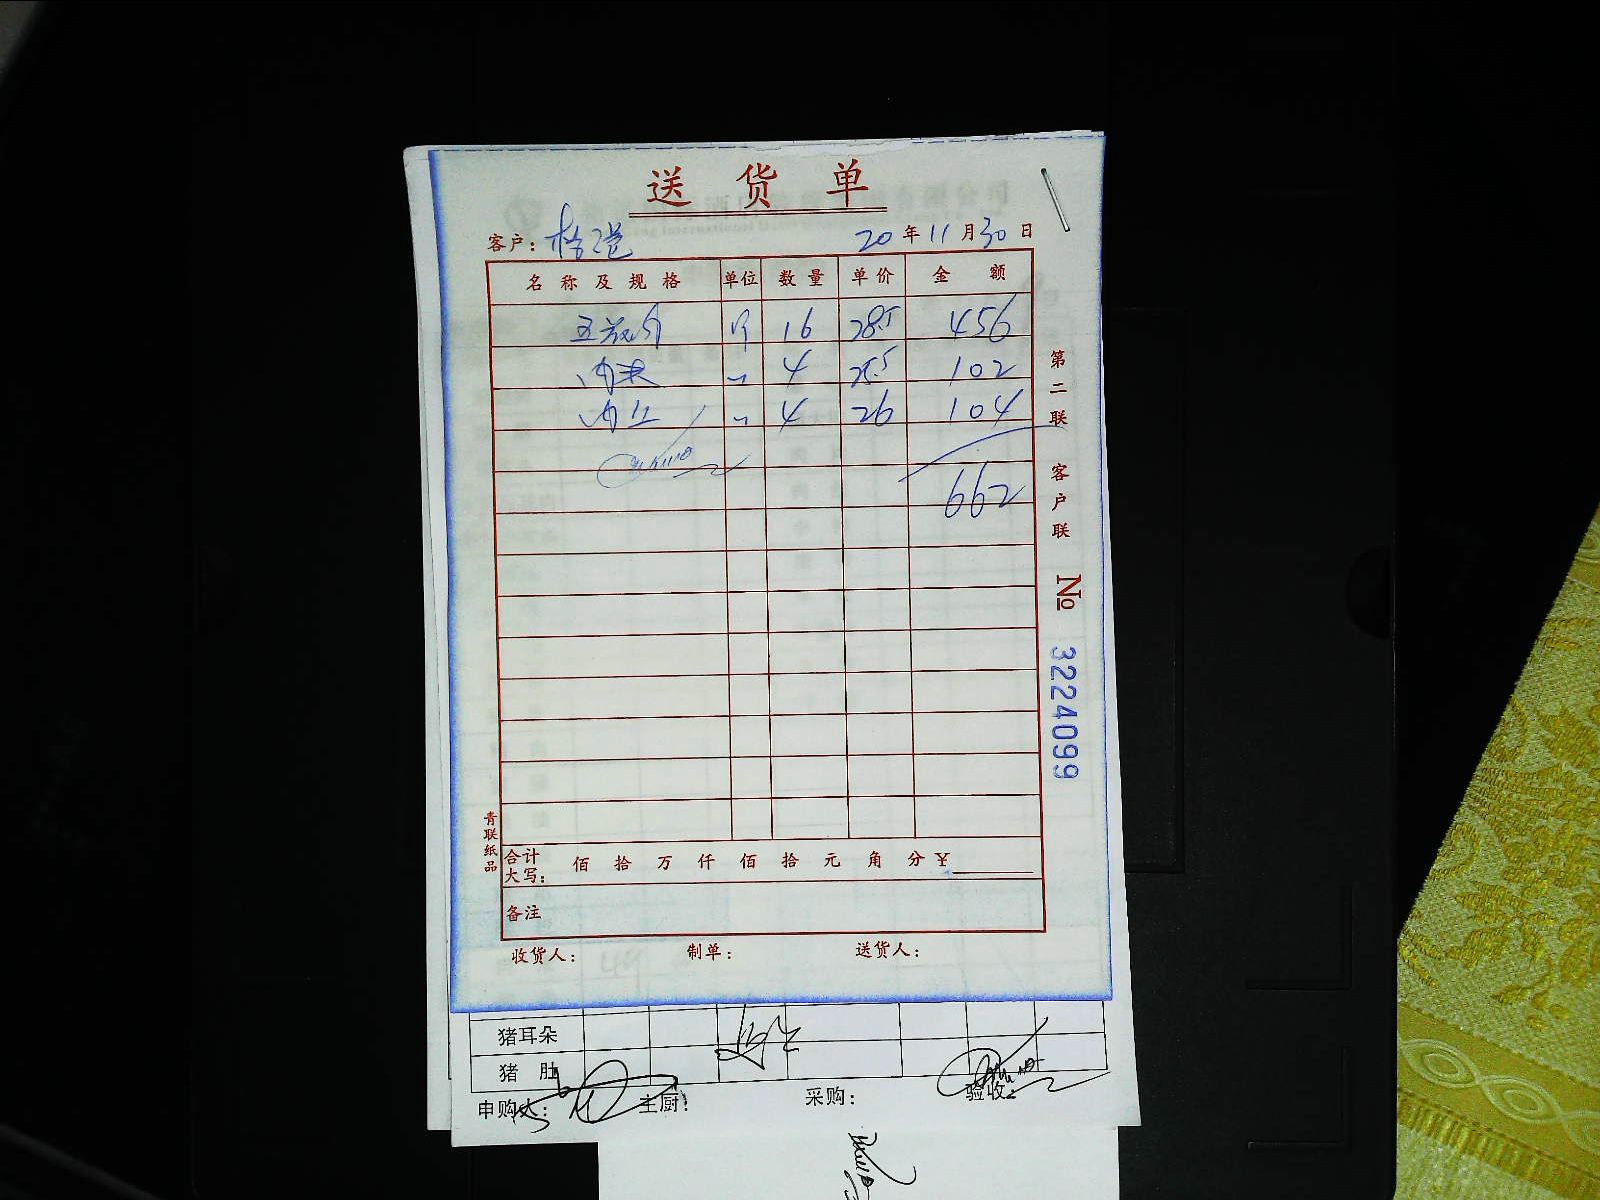 送货单
客户: 20年11月30日
名称及规格 单位 数量 单价 金额
五花肉 斤 16 28.5 456
肉 〃 4 25.5 102
肉 〃 4 26 104
662
第二联 客户联
№ 3224099
青联纸品
合计大写: 佰 拾 万 仟 佰 拾 元 角 分 ¥
备注
收货人: 制单: 送货人:
猪耳朵
猪肚
申购人: 主厨: 采购: 验收: